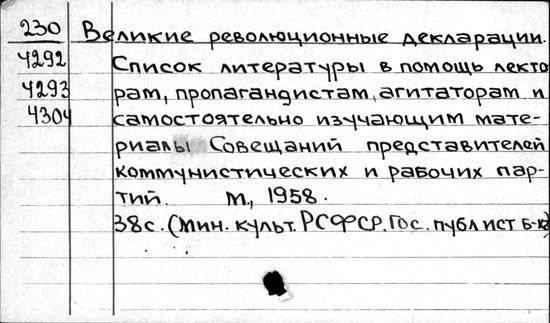 230 Великие революционные декларации.
4292 Список литературы в помощь лекто
4293 рам, пропагандистам, агитаторам и
4304 самостоятельно изучающим мате-
риалы Совещаний представителей
коммунистических и рабочих пар-
тий. М., 1958.
38с. (Мин. культ. РСФСР. Гос. публ ист б-ка)